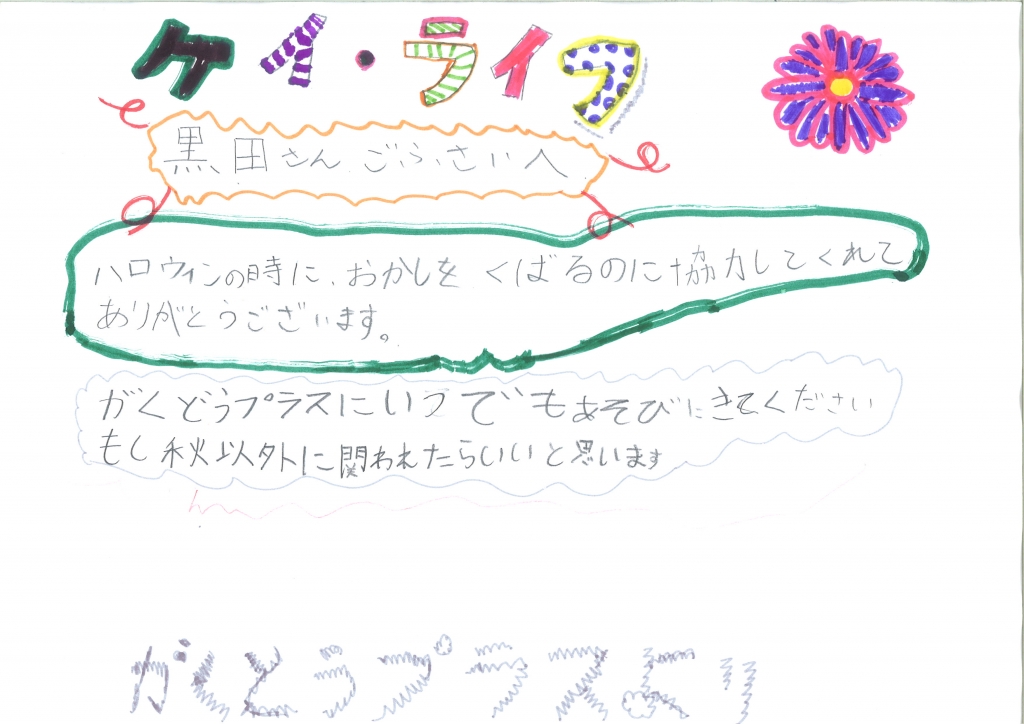 ケイ・ライフ
黒田さんごふさいへ
ハロウィンの時に、おかしをくばるのに協力してくれて
ありがとうございます。
がくどうプラスにいつでもあそびにきてください
もし秋以外に関われたらいいと思います
がくどうプラスより